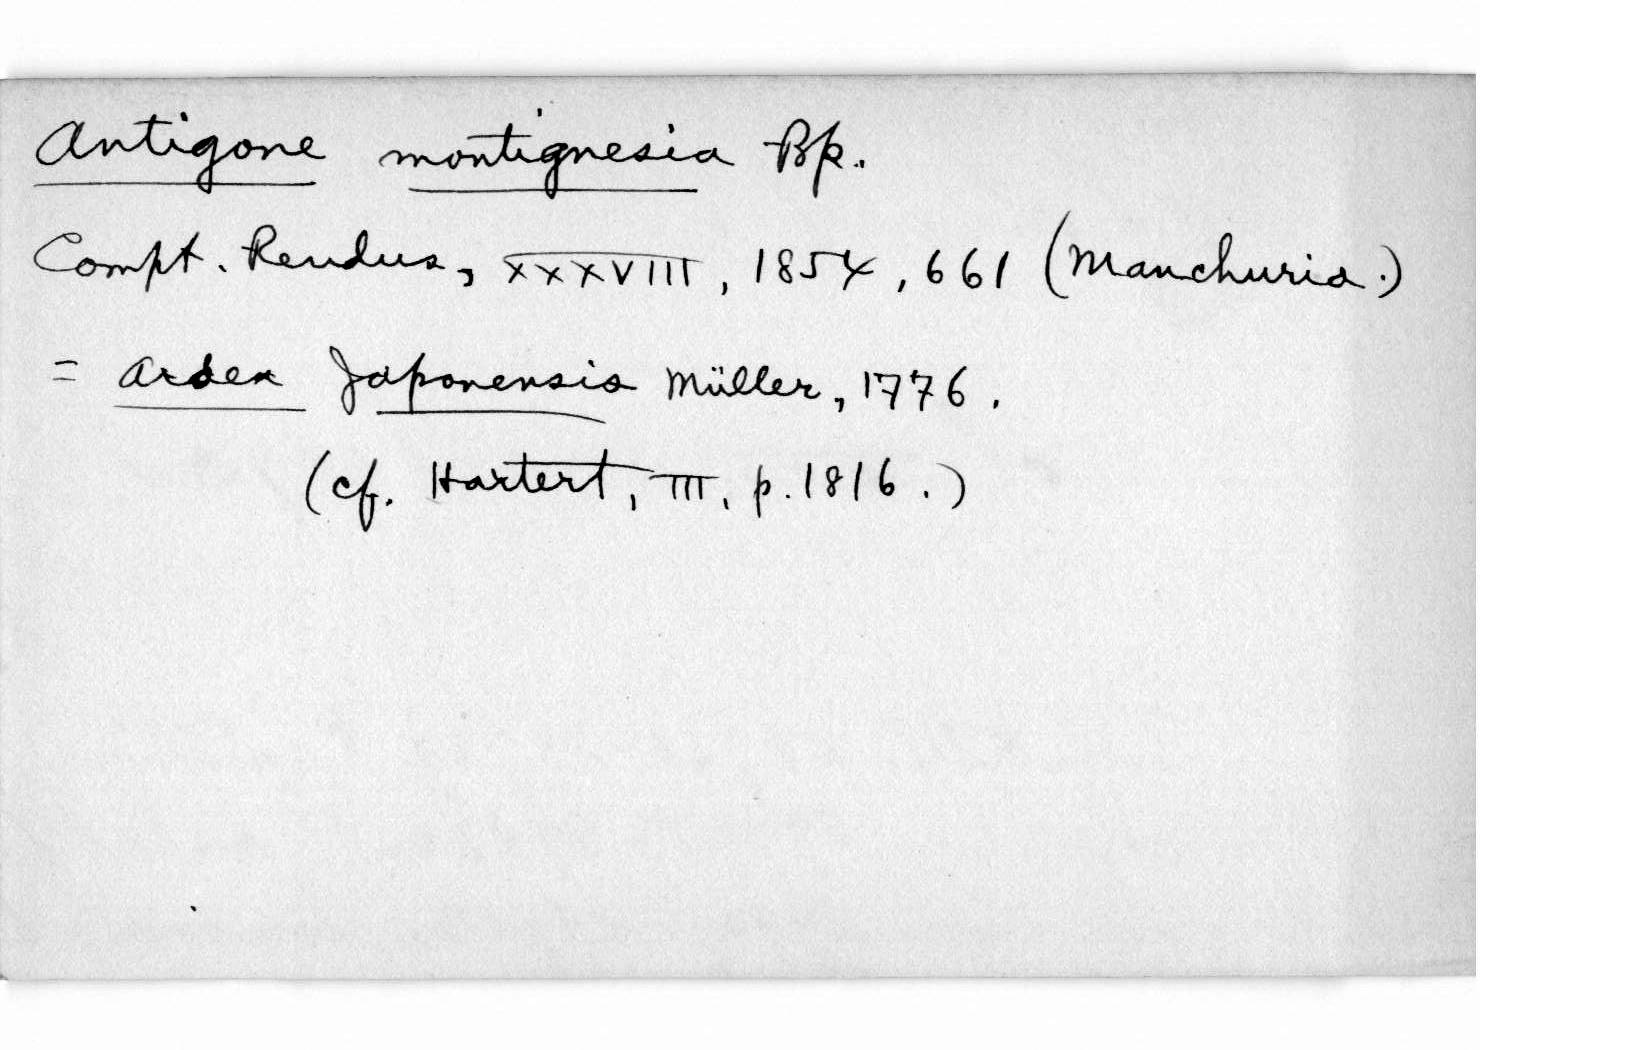 Antigone montignesia Bp.
Compt. Rendus, XXXVIII, 1854, 661 (Manchuria.)
= Ardea Japonensis Müller, 1776.
(cf. Hartert, III, p. 1816.)